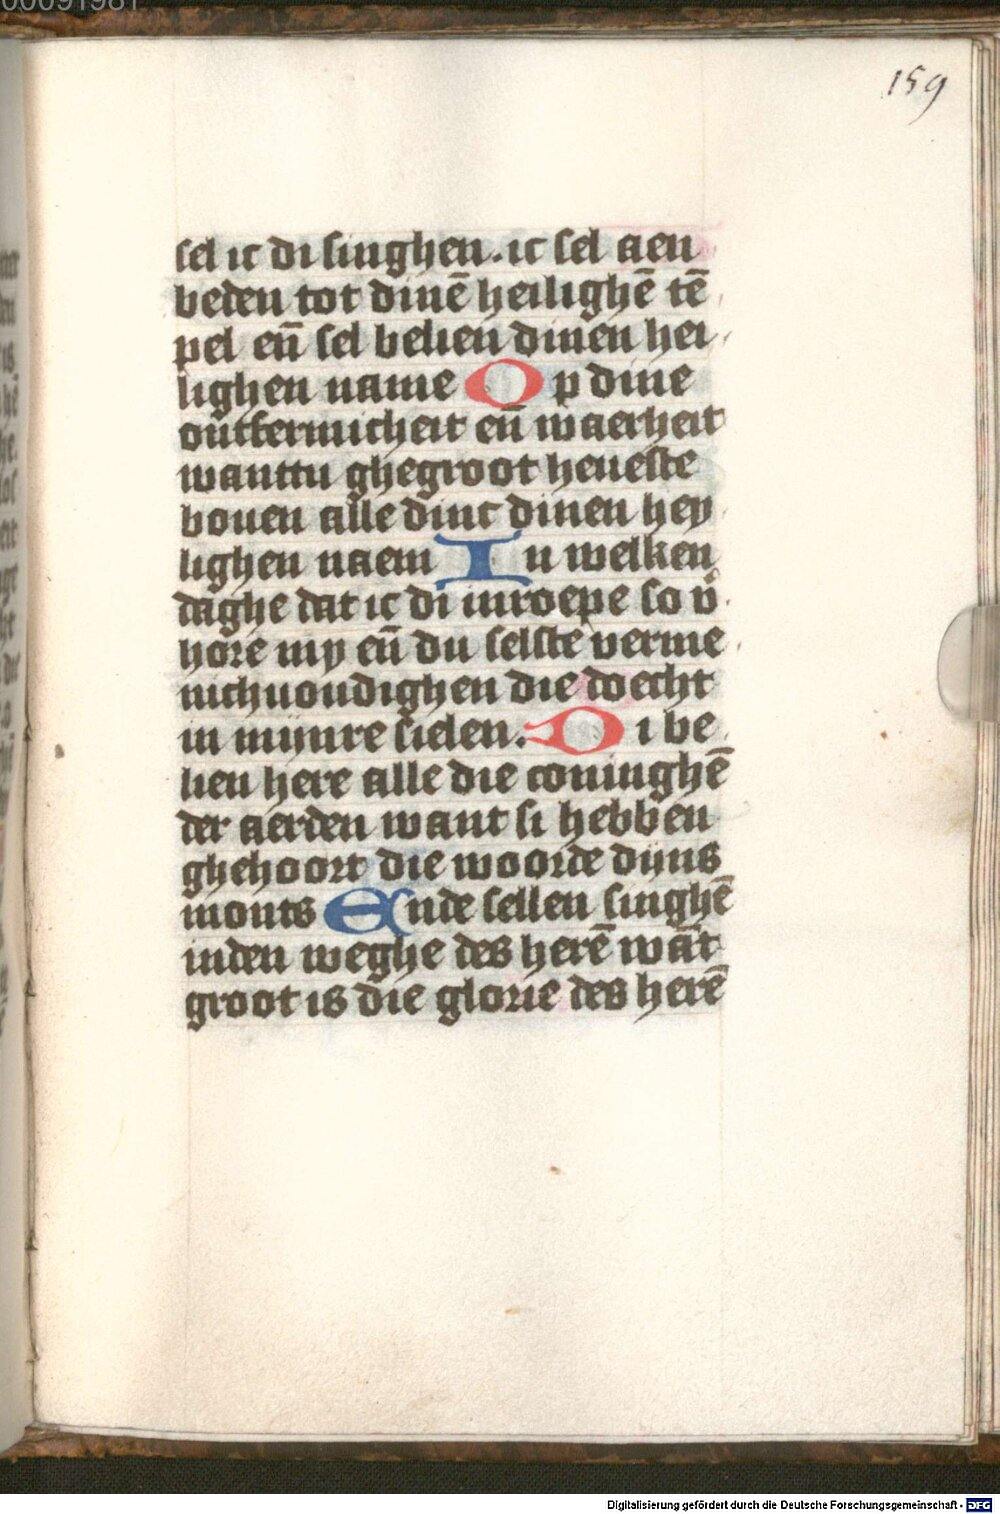 159
sel ic di singhen. ic sel aen
beden tot dinē heilighē tē
pel en̄ sel belien dinen hei
lighen name Op dine
ontfermicheit en̄ waerheit
wanttu ghegroot heueste
bouen alle dinc dinen hey
lighen naem In welken
daghe dat ic di inroepe so v̄
hore my en̄ du selste verme
nichuoudighen die doecht
in mijnre sielen. Di be
lien here alle die coninghē
der aerden want si hebben
ghehoort die woorde dijns
monts Ende sellen singhē
inden weghe des herē wāt
groot is die glorie des herē
Digitalisierung gefördert durch die Deutsche Forschungsgemeinschaft - DFG